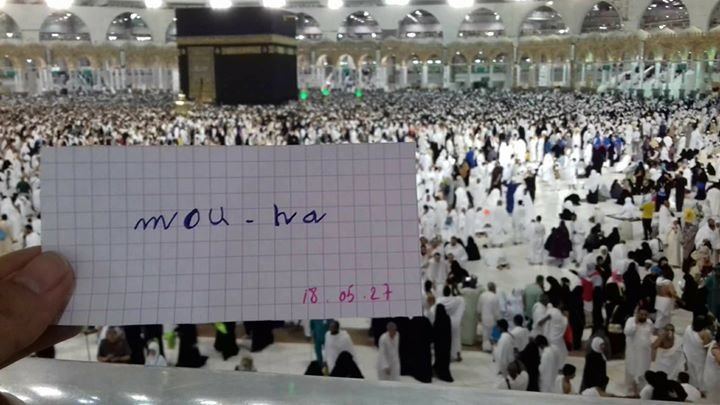 mou - ha
18.05.27